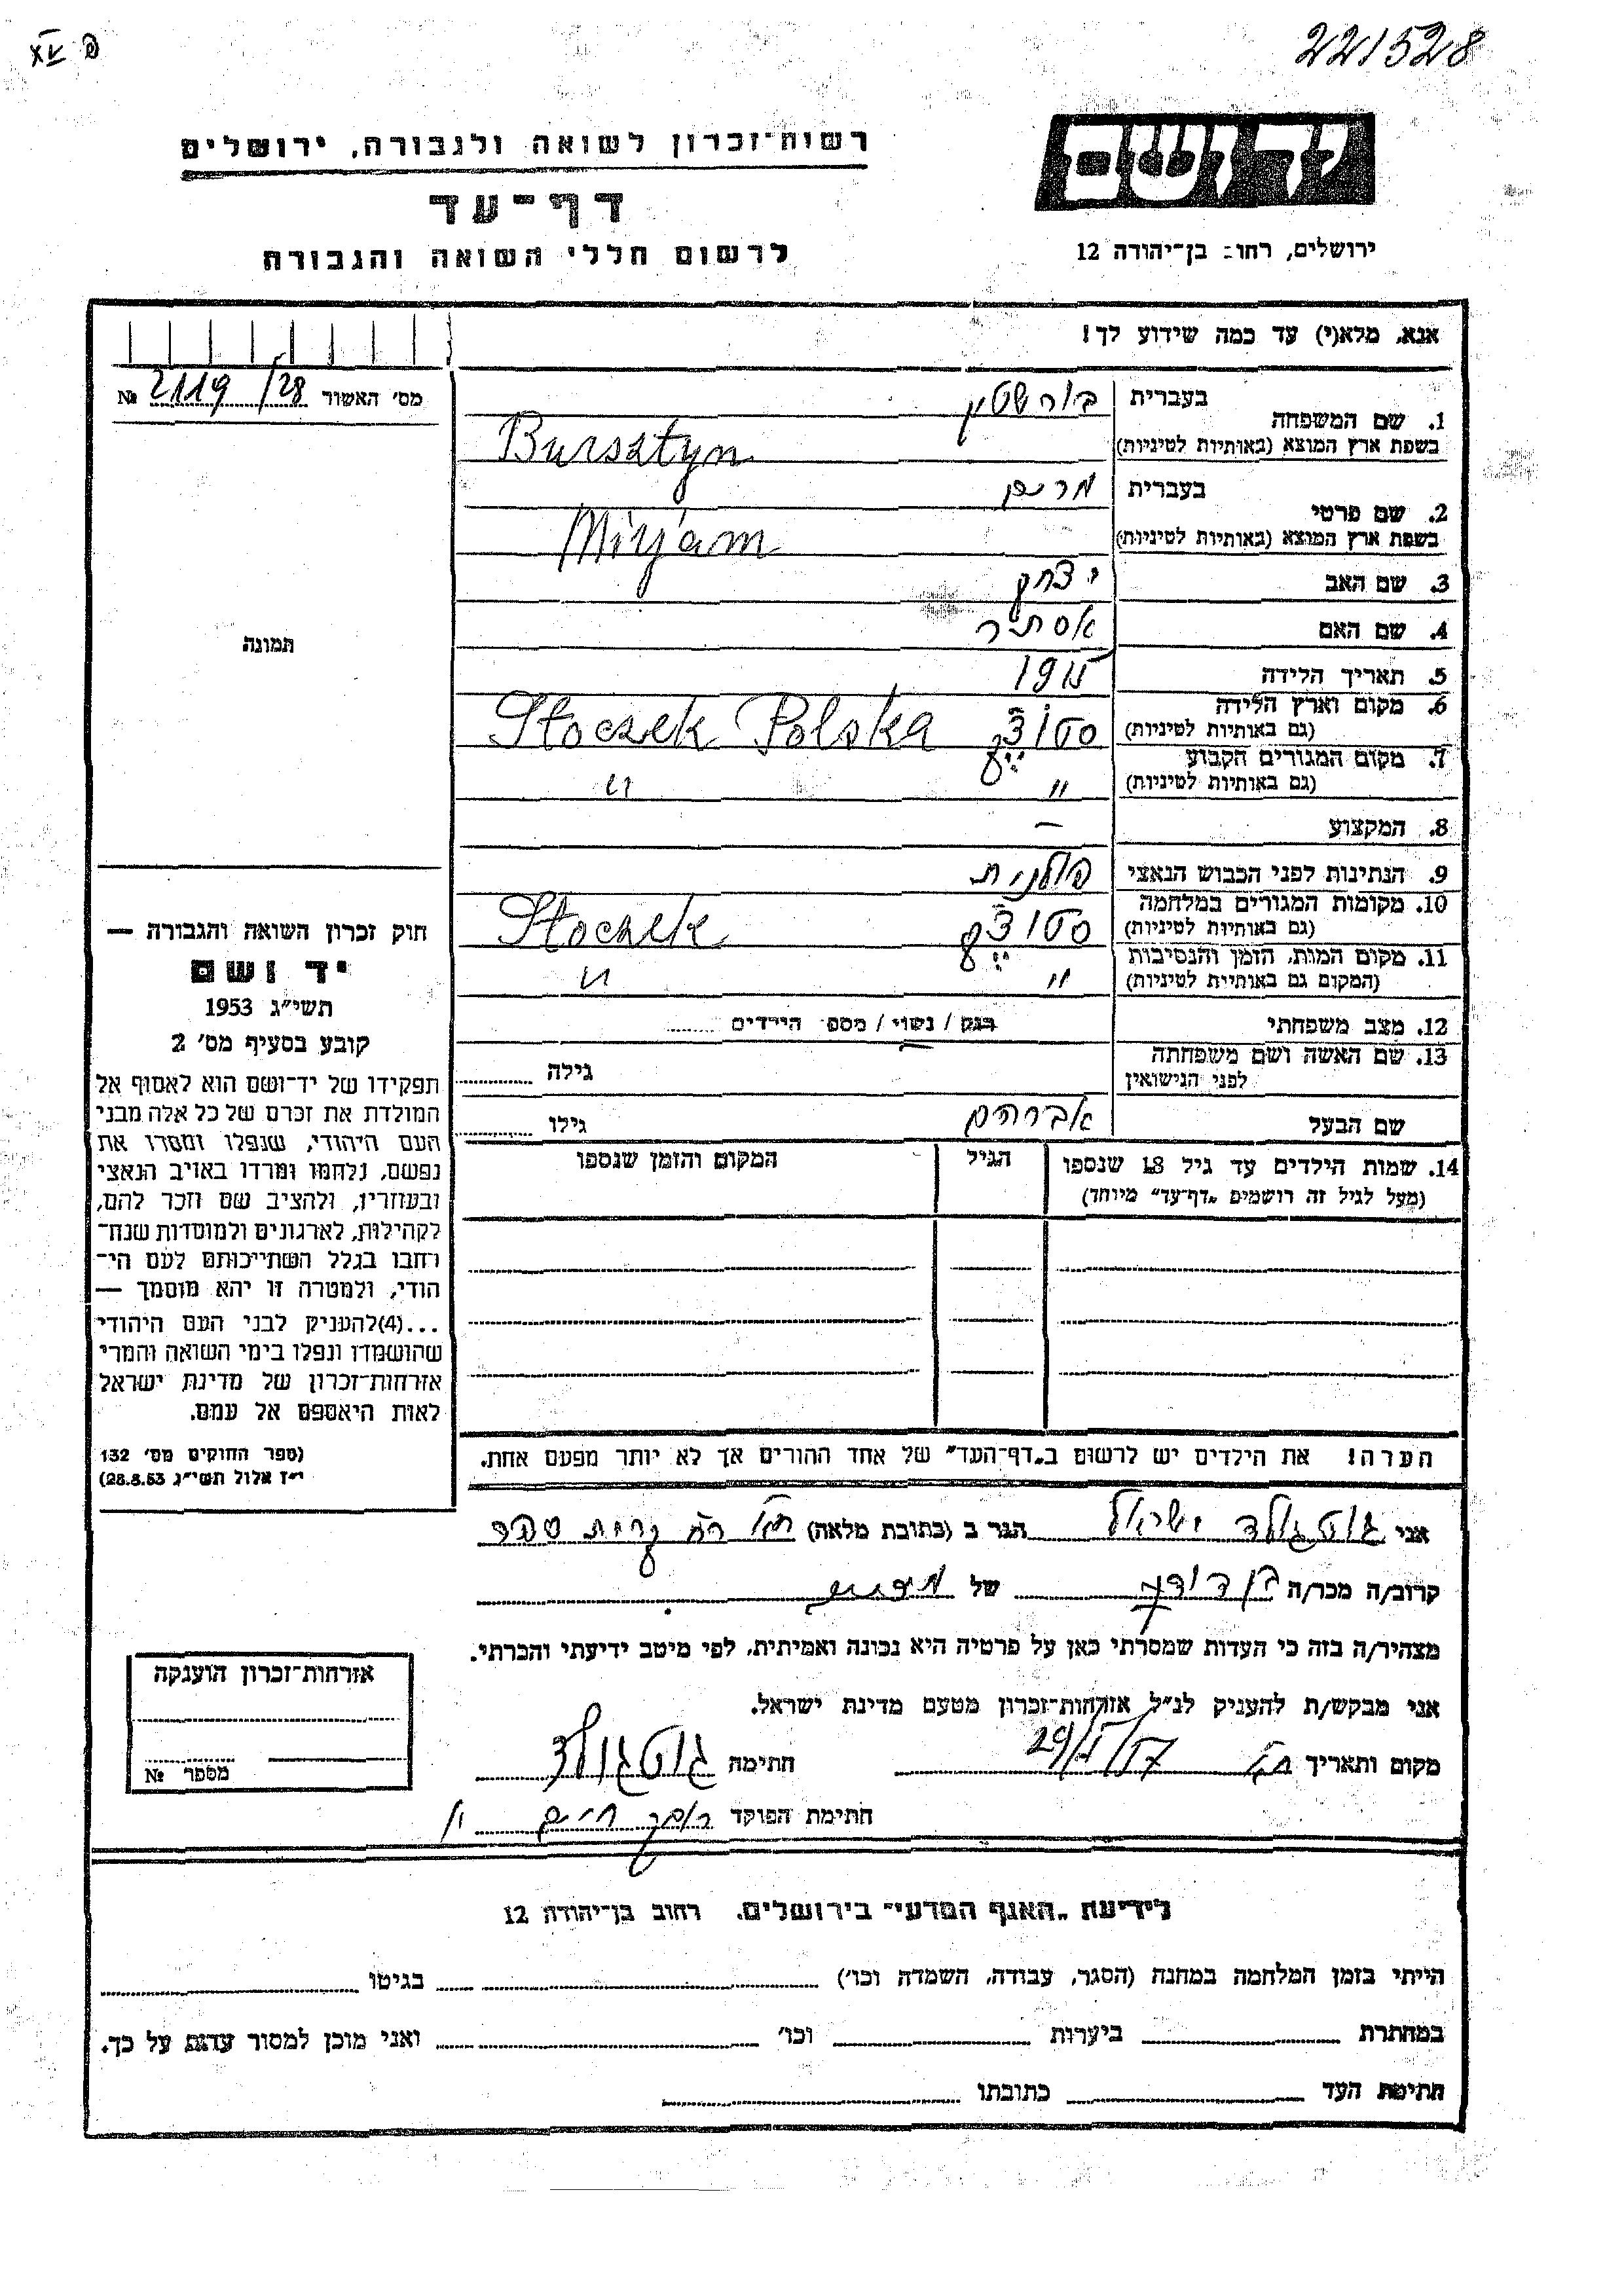 221528
XV פ
יד ושם
ירושלים, רחוב בן־יהודה 12
רשות־זכרון לשואה ולגבורה, ירושלים
דף־עד
לרשום חללי השואה והגבורה
אנא, מלא(י) עד כמה שידוע לך!
מס׳ האשור 2119/28 №
1. שם המשפחה
בעברית בורשטין
בשפת ארץ המוצא (באותיות לטיניות) Bursztyn
2. שם פרטי
בעברית מרים
בשפת ארץ המוצא (באותיות לטיניות) Mirjam
3. שם האב יצחק
4. שם האם אסתר
5. תאריך הלידה 1915
6. מקום וארץ הלידה
(גם באותיות לטיניות) Stoczek Polska
7. מקום המגורים הקבוע
(גם באותיות לטיניות) " "
8. המקצוע –
9. הנתינות לפני הכבוש הנאצי פולנית
10. מקומות המגורים במלחמה
(גם באותיות לטיניות) Stoczek
11. מקום המות, הזמן והנסיבות
(המקום גם באותיות לטיניות) " "
12. מצב משפחתי רווק / נשוי / מספר הילדים
13. שם האשה ושם משפחתה
לפני הנישואין גילה
שם הבעל אברהם גילו
14. שמות הילדים עד גיל 18 שנספו
(מעל לגיל זה רושמים „דף־עד" מיוחד)
הגיל
המקום והזמן שנספו
הערה! את הילדים יש לרשום ב„דף־העד" של אחד ההורים אך לא יותר מפעם אחת.
תמונה
חוק זכרון השואה והגבורה —
יד ושם
תשי״ג 1953
קובע בסעיף מס׳ 2
תפקידו של יד־ושם הוא לאסוף אל
המולדת את זכרם של כל אלה מבני
העם היהודי, שנפלו ומסרו את
נפשם, נלחמו ומרדו באויב הנאצי
ובעוזריו, ולהציב שם וזכר להם,
לקהילות, לארגונים ולמוסדות שנח־
רחבו בגלל השתייכותם לעם הי־
הודי, ולמטרה זו יהא מוסמך —
...(4)להעניק לבני העם היהודי
שהושמדו ונפלו בימי השואה והמרי
אזרחות־זכרון של מדינת ישראל
לאות היאספם אל עמם.
(ספר החוקים מס׳ 132
י״ז אלול תשי״ג 28.8.53)
אני גוטגולד ישראל הגר ב (כתובת מלאה) ת״א
קרוב/ה מכר/ה בן דודן של
מצהיר/ה בזה כי העדות שמסרתי כאן על פרטיה היא נכונה ואמיתית, לפי מיטב ידיעתי והכרתי.
אני מבקש/ת להעניק לנ״ל אזרחות־זכרון מטעם מדינת ישראל.
מקום ותאריך ת״א חתימה גוטגולד
חתימת הפוקד
אזרחות־זכרון הוענקה
מספר №
לידיעת „האגף המדעי" בירושלים, רחוב בן־יהודה 12
הייתי בזמן המלחמה במחנה (הסגר, עבודה, השמדה וכו׳) בגיטו
במחתרת ביערות וכו׳ ואני מוכן למסור עדות על כך.
חתימת העד כתובתו